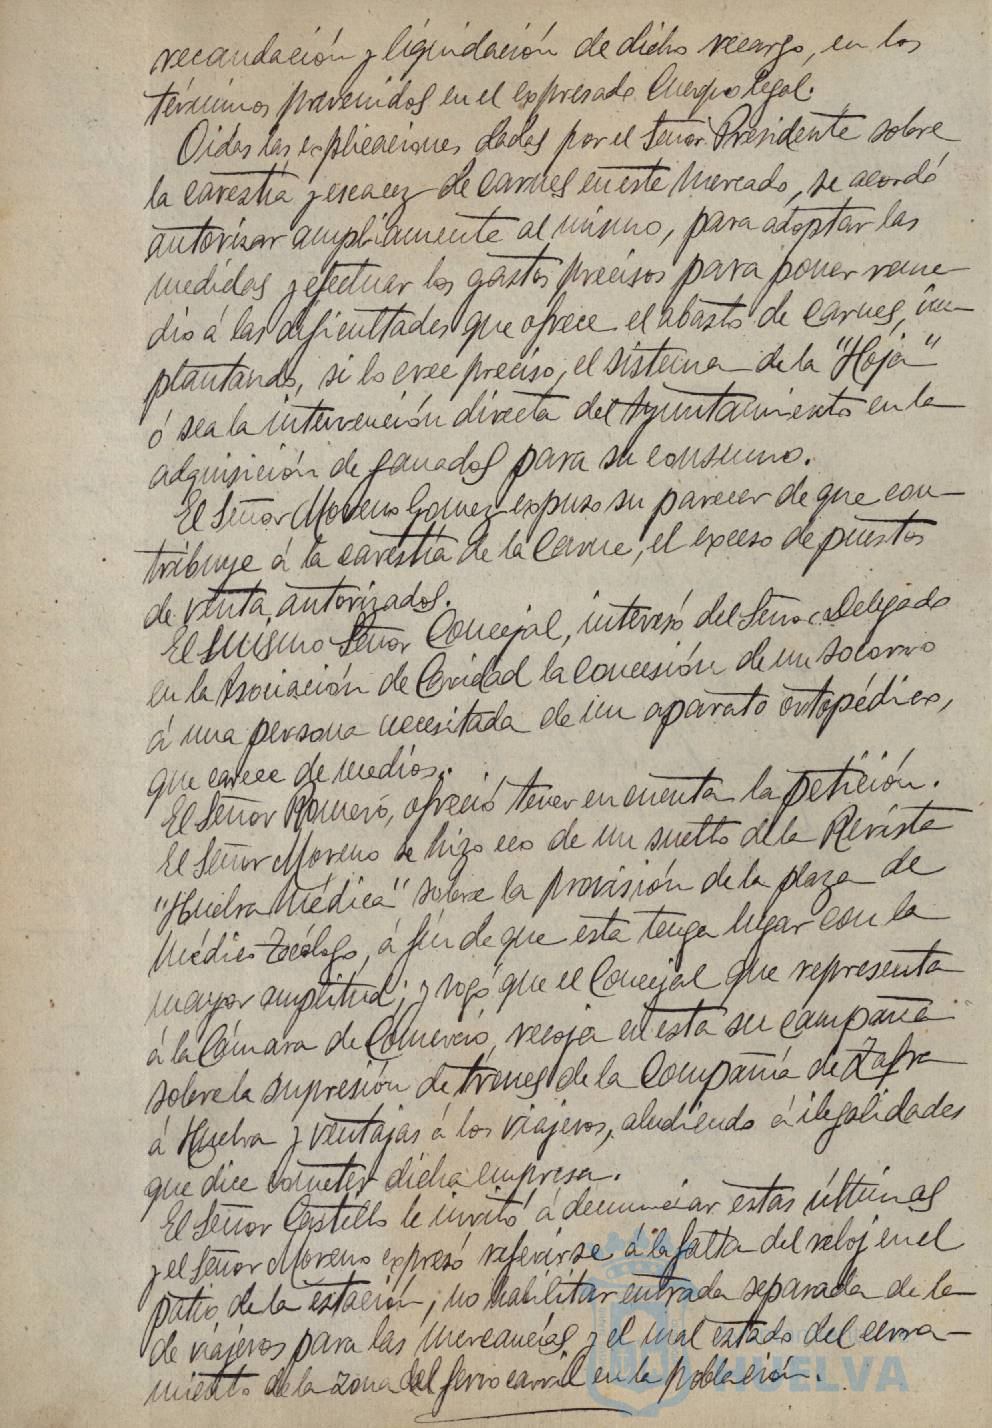 recaudación y liquidación de dicho recargo, en los
términos prevenidos en el expresado Cuerpo legal.
Oidas las explicaciones dadas por el Señor Presidente sobre
la carestía y escacez de carnes en este Mercado, se acordó
autorizar ampliamente al mismo, para adoptar las
medidas y efectuar los gastos precisos para poner reme-
dio á las dificultades que ofrece el abasto de carnes, im-
plantando, si lo cree preciso, el sistema de la "Hoja"
ó sea la intervención directa del Ayuntamiento en la
adquisición de ganados para su consumo.
El Señor Moreno Gomez expuso su parecer de que con-
tribuye á la carestía de la Carne, el exceso de puestos
de venta autorizados.
El mismo Señor Concejal, interesó del Señor Delegado
en la Asociación de Caridad la concesión de un socorro
á una persona necesitada de un aparato ortopédico,
que carece de medios.
El Señor Romero, ofreció tener en cuenta la petición.
El Señor Moreno se hizo eco de un suelto de la Revista
"Huelva Médica" sobre la provisión de la plaza de
Médico Tocólogo, á fin de que esta tenga lugar con la
mayor amplitud; y rogó que el Concejal que representa
á la Cámara de Comercio, recoja en esta su campaña
sobre la supresión de trenes de la Compañía de Zafra
á Huelva y ventajas á los viajeros, aludiendo á ilegalidades
que dice cometer dicha empresa.
El Señor Castillo le invitó á denunciar estas últimas
y el Señor Moreno expresó referirse á la falta del reloj en el
patio de la estación; no habilitar entrada separada de la
de viajeros para las mercancías y el mal estado del cerra-
miento de la zona del ferrocarril en la población.
HUELVA